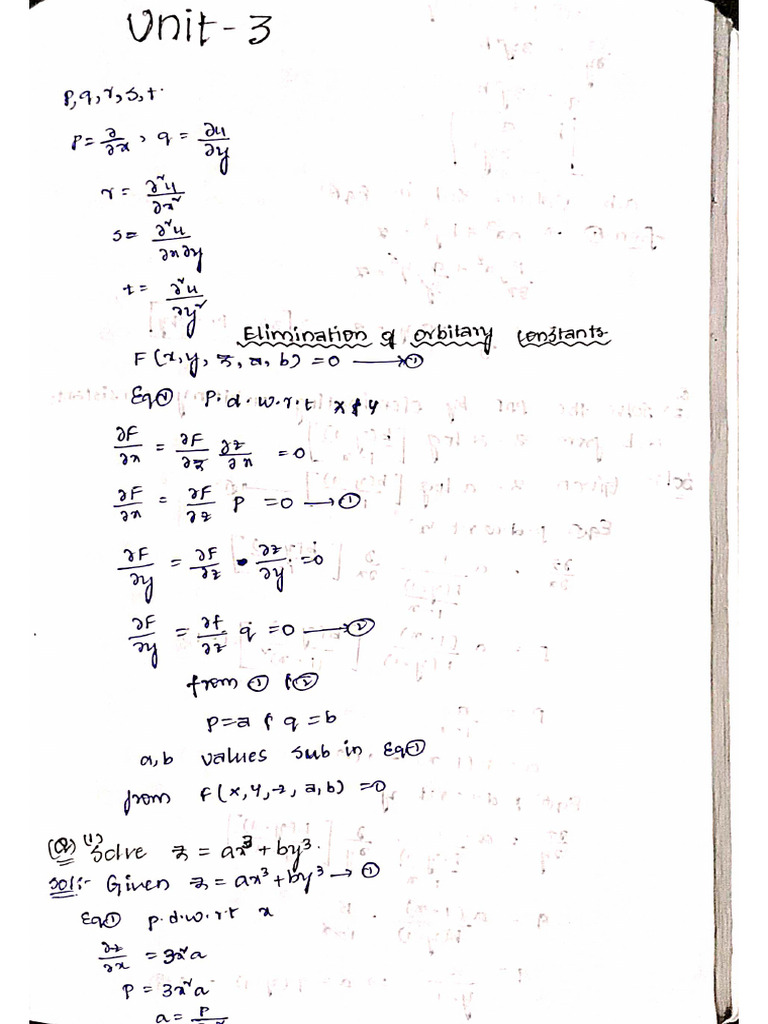 Unit - 3
P, q, r, s, t.
P = ∂/∂x , q = ∂u/∂y
r = ∂²u/∂x²
s = ∂²u/∂x∂y
t = ∂²u/∂y²
Elimination of orbitary constants
F(x, y, z, a, b) = 0 → ①
Eq① P.d.w.r.t x & y
∂F/∂x = ∂F/∂z ∂z/∂x = 0
∂F/∂x = ∂F/∂z P = 0 → ①
∂F/∂y = ∂F/∂z · ∂z/∂y = 0
∂F/∂y = ∂f/∂z q = 0 → ②
from ① & ②
P = a & q = b
a, b values sub in Eq①
from F(x, y, z, a, b) = 0
(Q) (1) Solve z = ax³ + by³.
Sol:- Given z = ax³ + by³ → ①
Eq① p.d.w.r.t x
∂z/∂x = 3x²a
P = 3x²a
a = P/